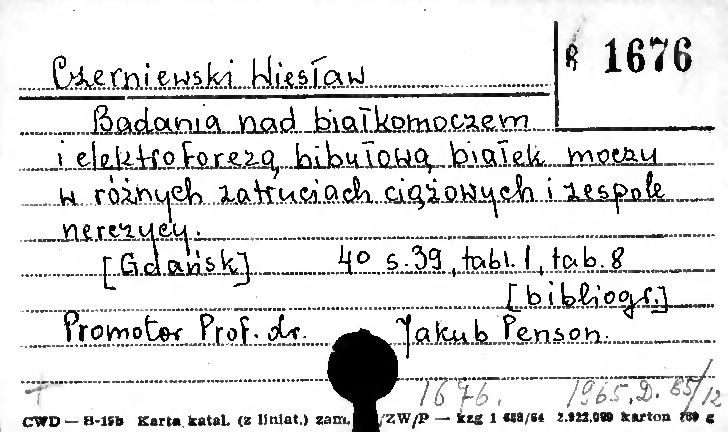 R 1676
Czerniewski Wiesław
Badania nad białkomoczem
i elektroforezą bibułową białek moczu
w różnych zatruciach ciążowych i zespole
nerczycy.
[Gdańsk] 4° s.39, tabl.1, tab.8
[bibliogr.]
Promotor Prof. dr. Jakub Penson.
+ 1676. 1965.D. 85/12
CWD — H-15b Karta katal. (z liniat.) zam. /ZW/P — kzg 1 /64 karton g